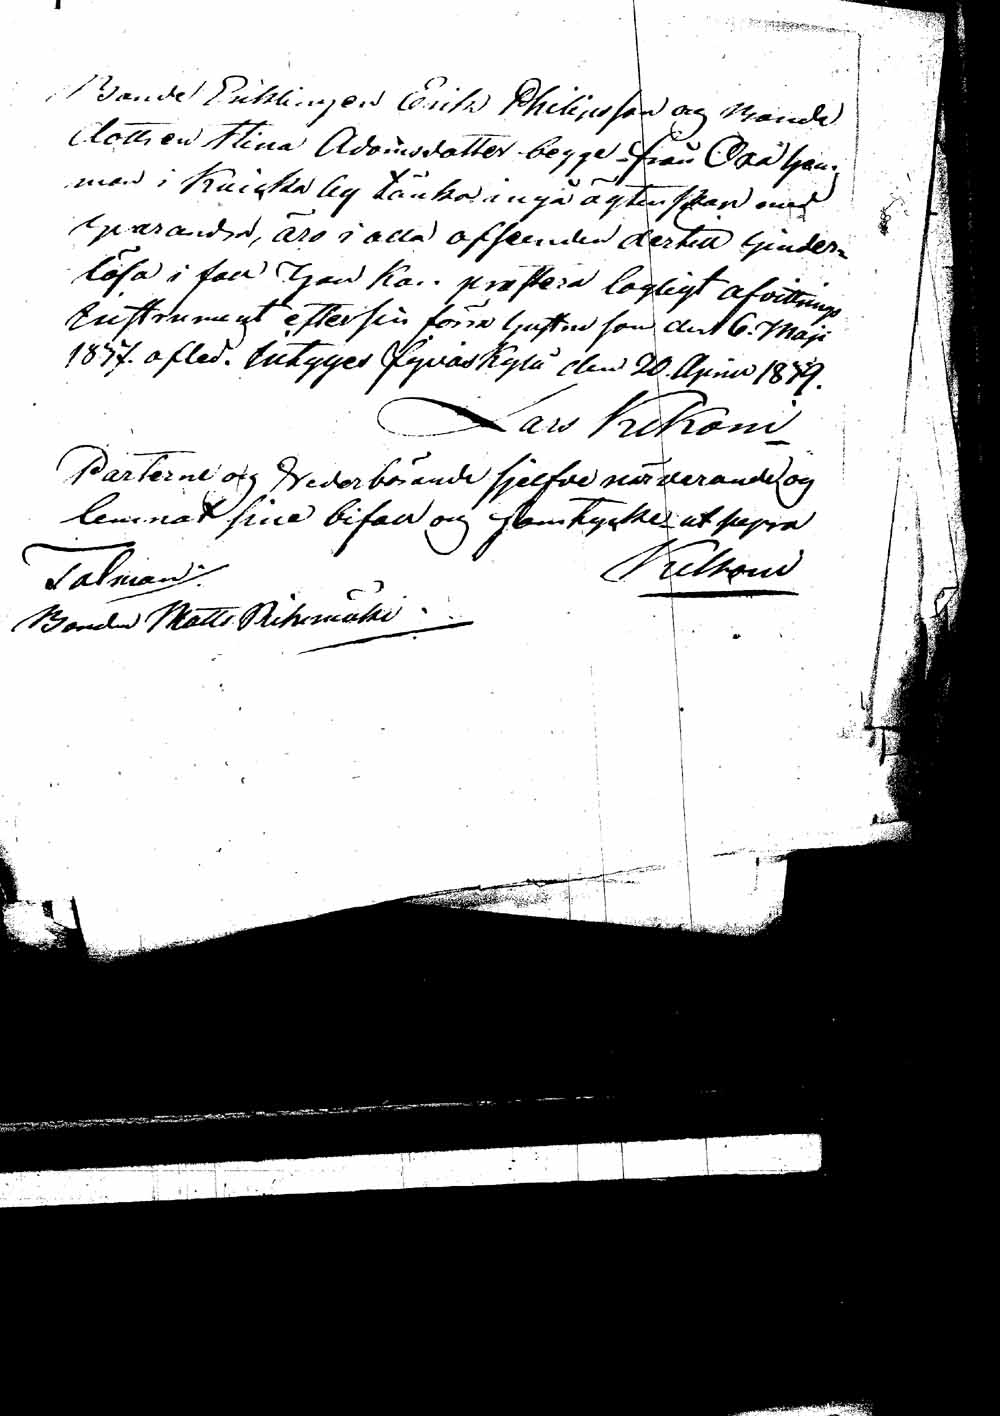 Bonde Enklingen Erik Philipsson og Bonde
dottren Stina Adamsdotter begge från Oxa
man i by tänka ingå ägtenskap med
hvarandra, äro i alla afseenden dertill hinder=
lösa i fall han kan præstera lagligt afvittrings
Instrument efter sin förra hustru som den 6. Maji
1877. afled. Intyges Jyväskylä den 20 April 1879.
Lars Kekoni
Parterne og Vederbörande sjelfve närvarande og
lemnat sina bifall og samtycke ut supra
Talman:
Kekoni
Bonden Matts Rihimäki